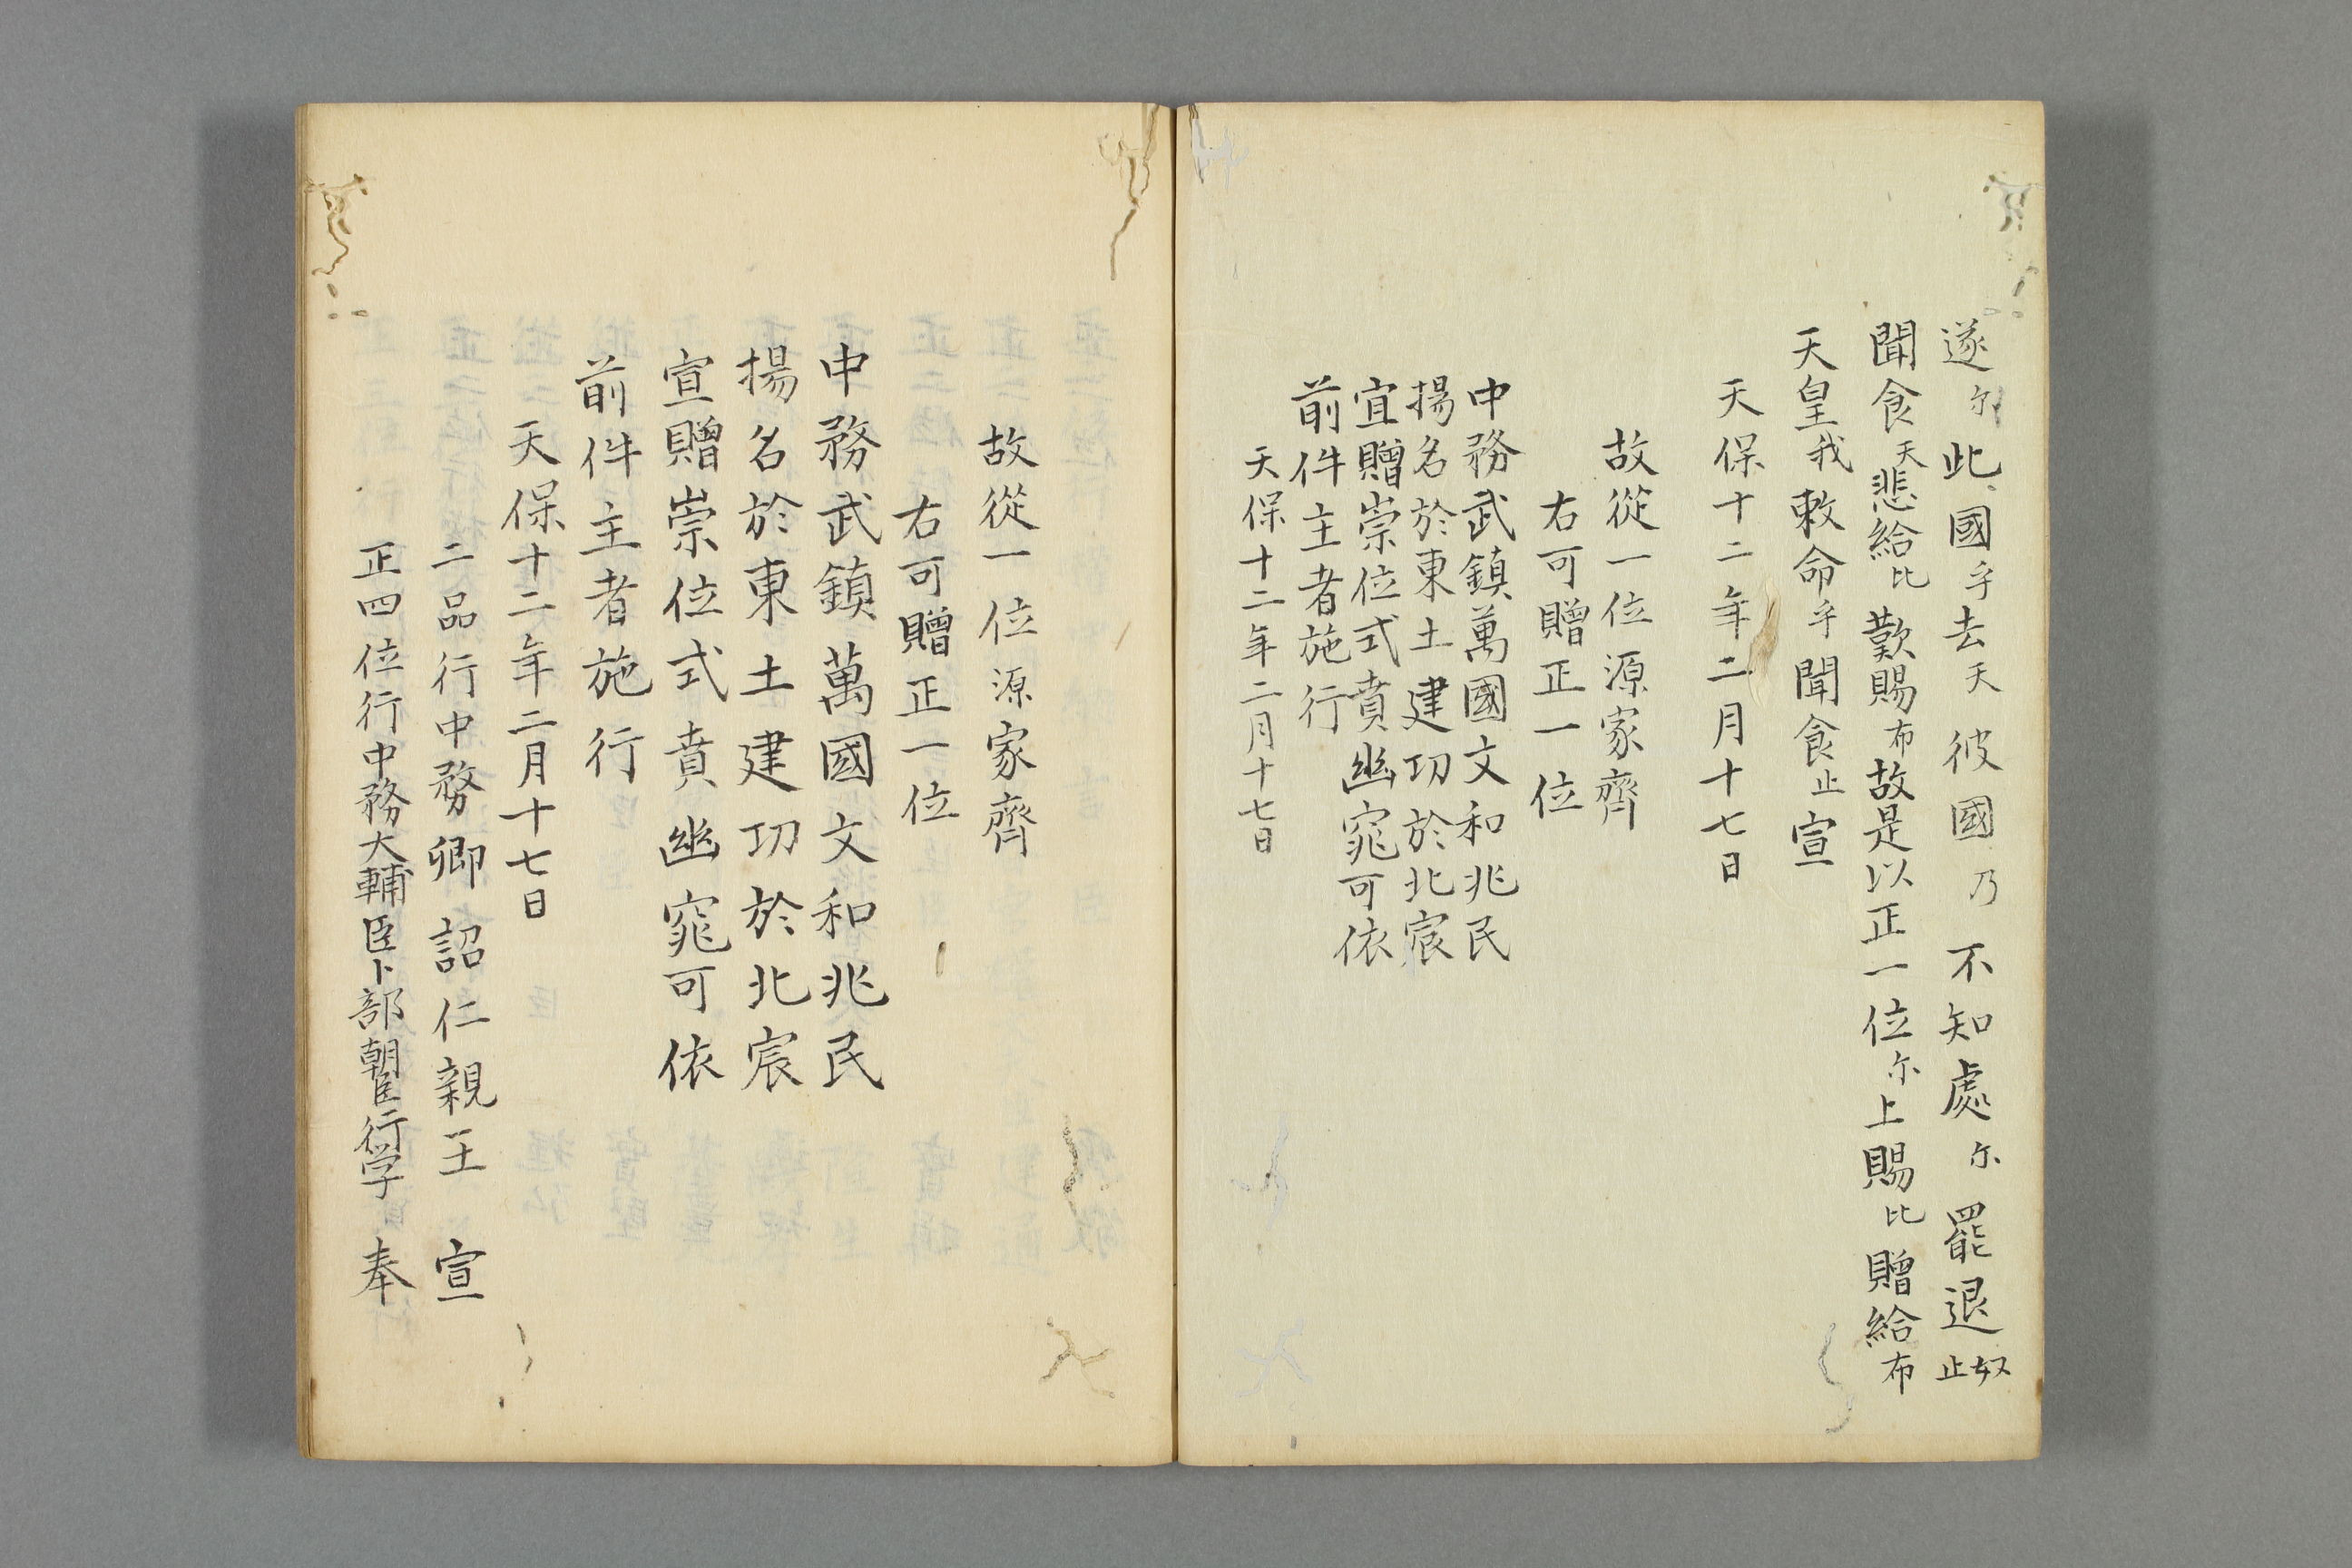 遂尓此國乎去天彼國乃不知處尓罷退止奴
聞食天悲給比歎賜布故是以正一位尓上賜比贈給布
天皇我敕命乎聞食止宣
天保十二年二月十七日
故從一位源家齊
右可贈正一位
中務武鎮萬國文和兆民
揚名於東土建功於北宸
宜贈崇位式賁幽窕可依
前件主者施行
天保十二年二月十七日
故從一位源家齊
右可贈正一位
中務武鎮萬國文和兆民
揚名於東土建功於北宸
宣贈崇位式賁幽窕可依
前件主者施行
天保十二年二月十七日
二品行中務卿詔仁親王 宣
正四位行中務大輔臣卜部朝臣行学 奉